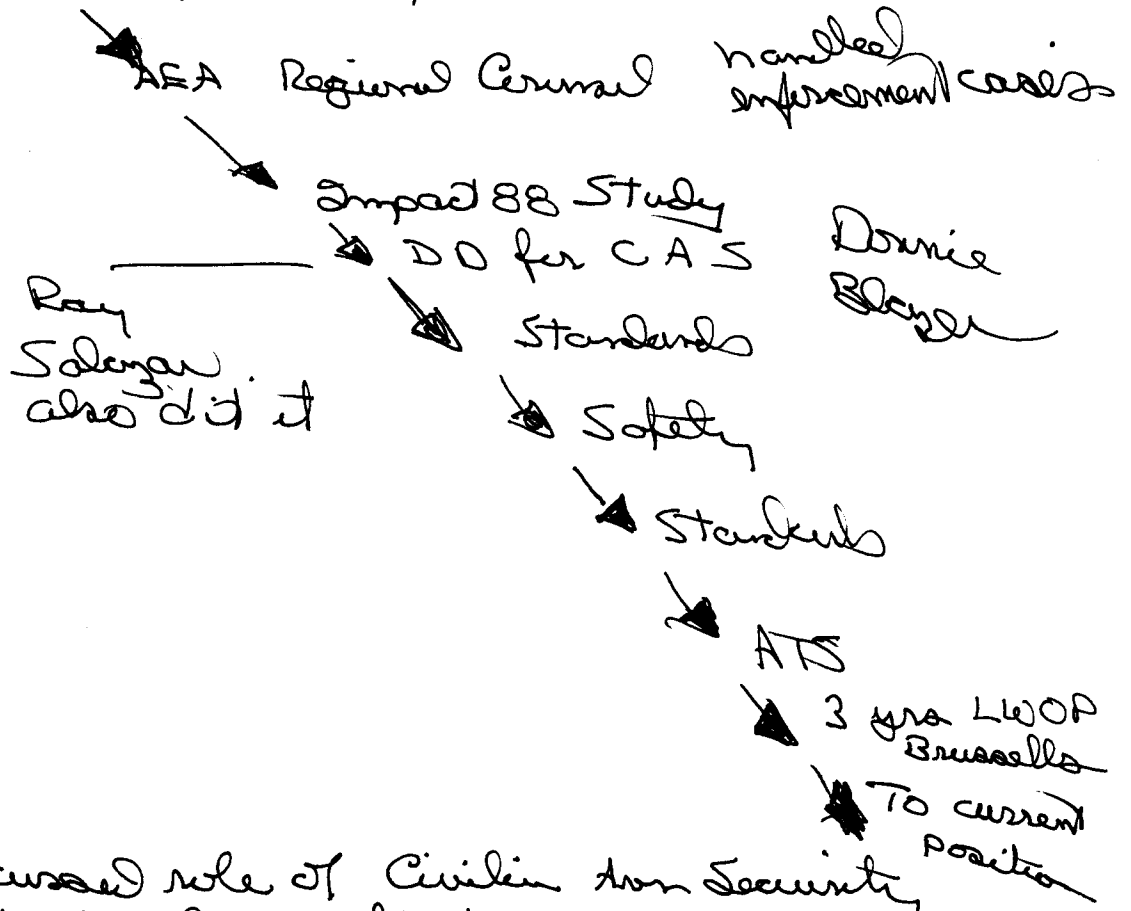 AEA Regional Counsel handled enforcement cases
Impact 88 Study
DD for CAS
Donnie
Blazer
Ray
Salazar
also did it
Standards
Safety
Standards
ATS
3 yrs LWOP
Brussells
To current
position
cussed role of Civilin Avn Security